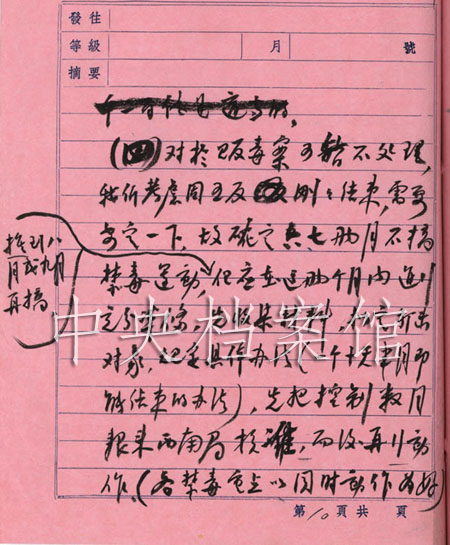 發往
等級 月 號
摘要
(四)对於贩毒案可暂不处理,
我们考虑因五反刚刚结束,需要
安定一下,故确定六七两月不搞
推到八
月或九月
再搞
禁毒运动,但应在这两个月内进行
充分准备,先收集材料,打击
对象,规定具体办法(一个十天半月即
能结束的办法),先把控制数目
报来西南局核准,而后再行动
作。(各禁毒重点以同时动作为好)
中央档案馆
第10頁共 頁